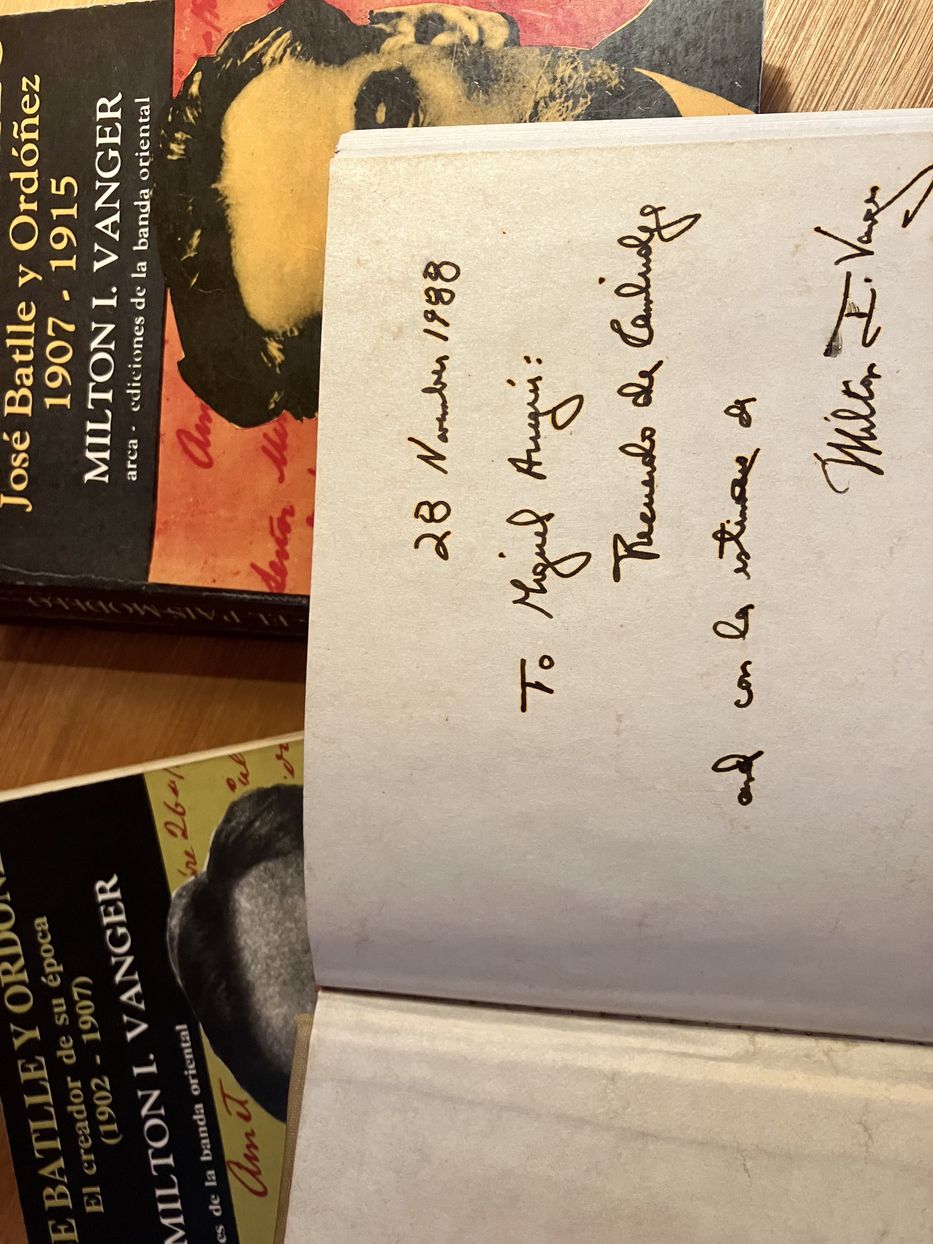 José Batlle y Ordóñez
1907 - 1915
MILTON I. VANGER
arca - ediciones de la banda oriental
EL PAIS MODELO
28 November 1988
To Miguel
Recuerdo de
and con la estima de
Milton I. Vanger
E BATLLE Y ORDOÑE
El creador de su época
(1902 - 1907)
MILTON I. VANGER
es de la banda oriental